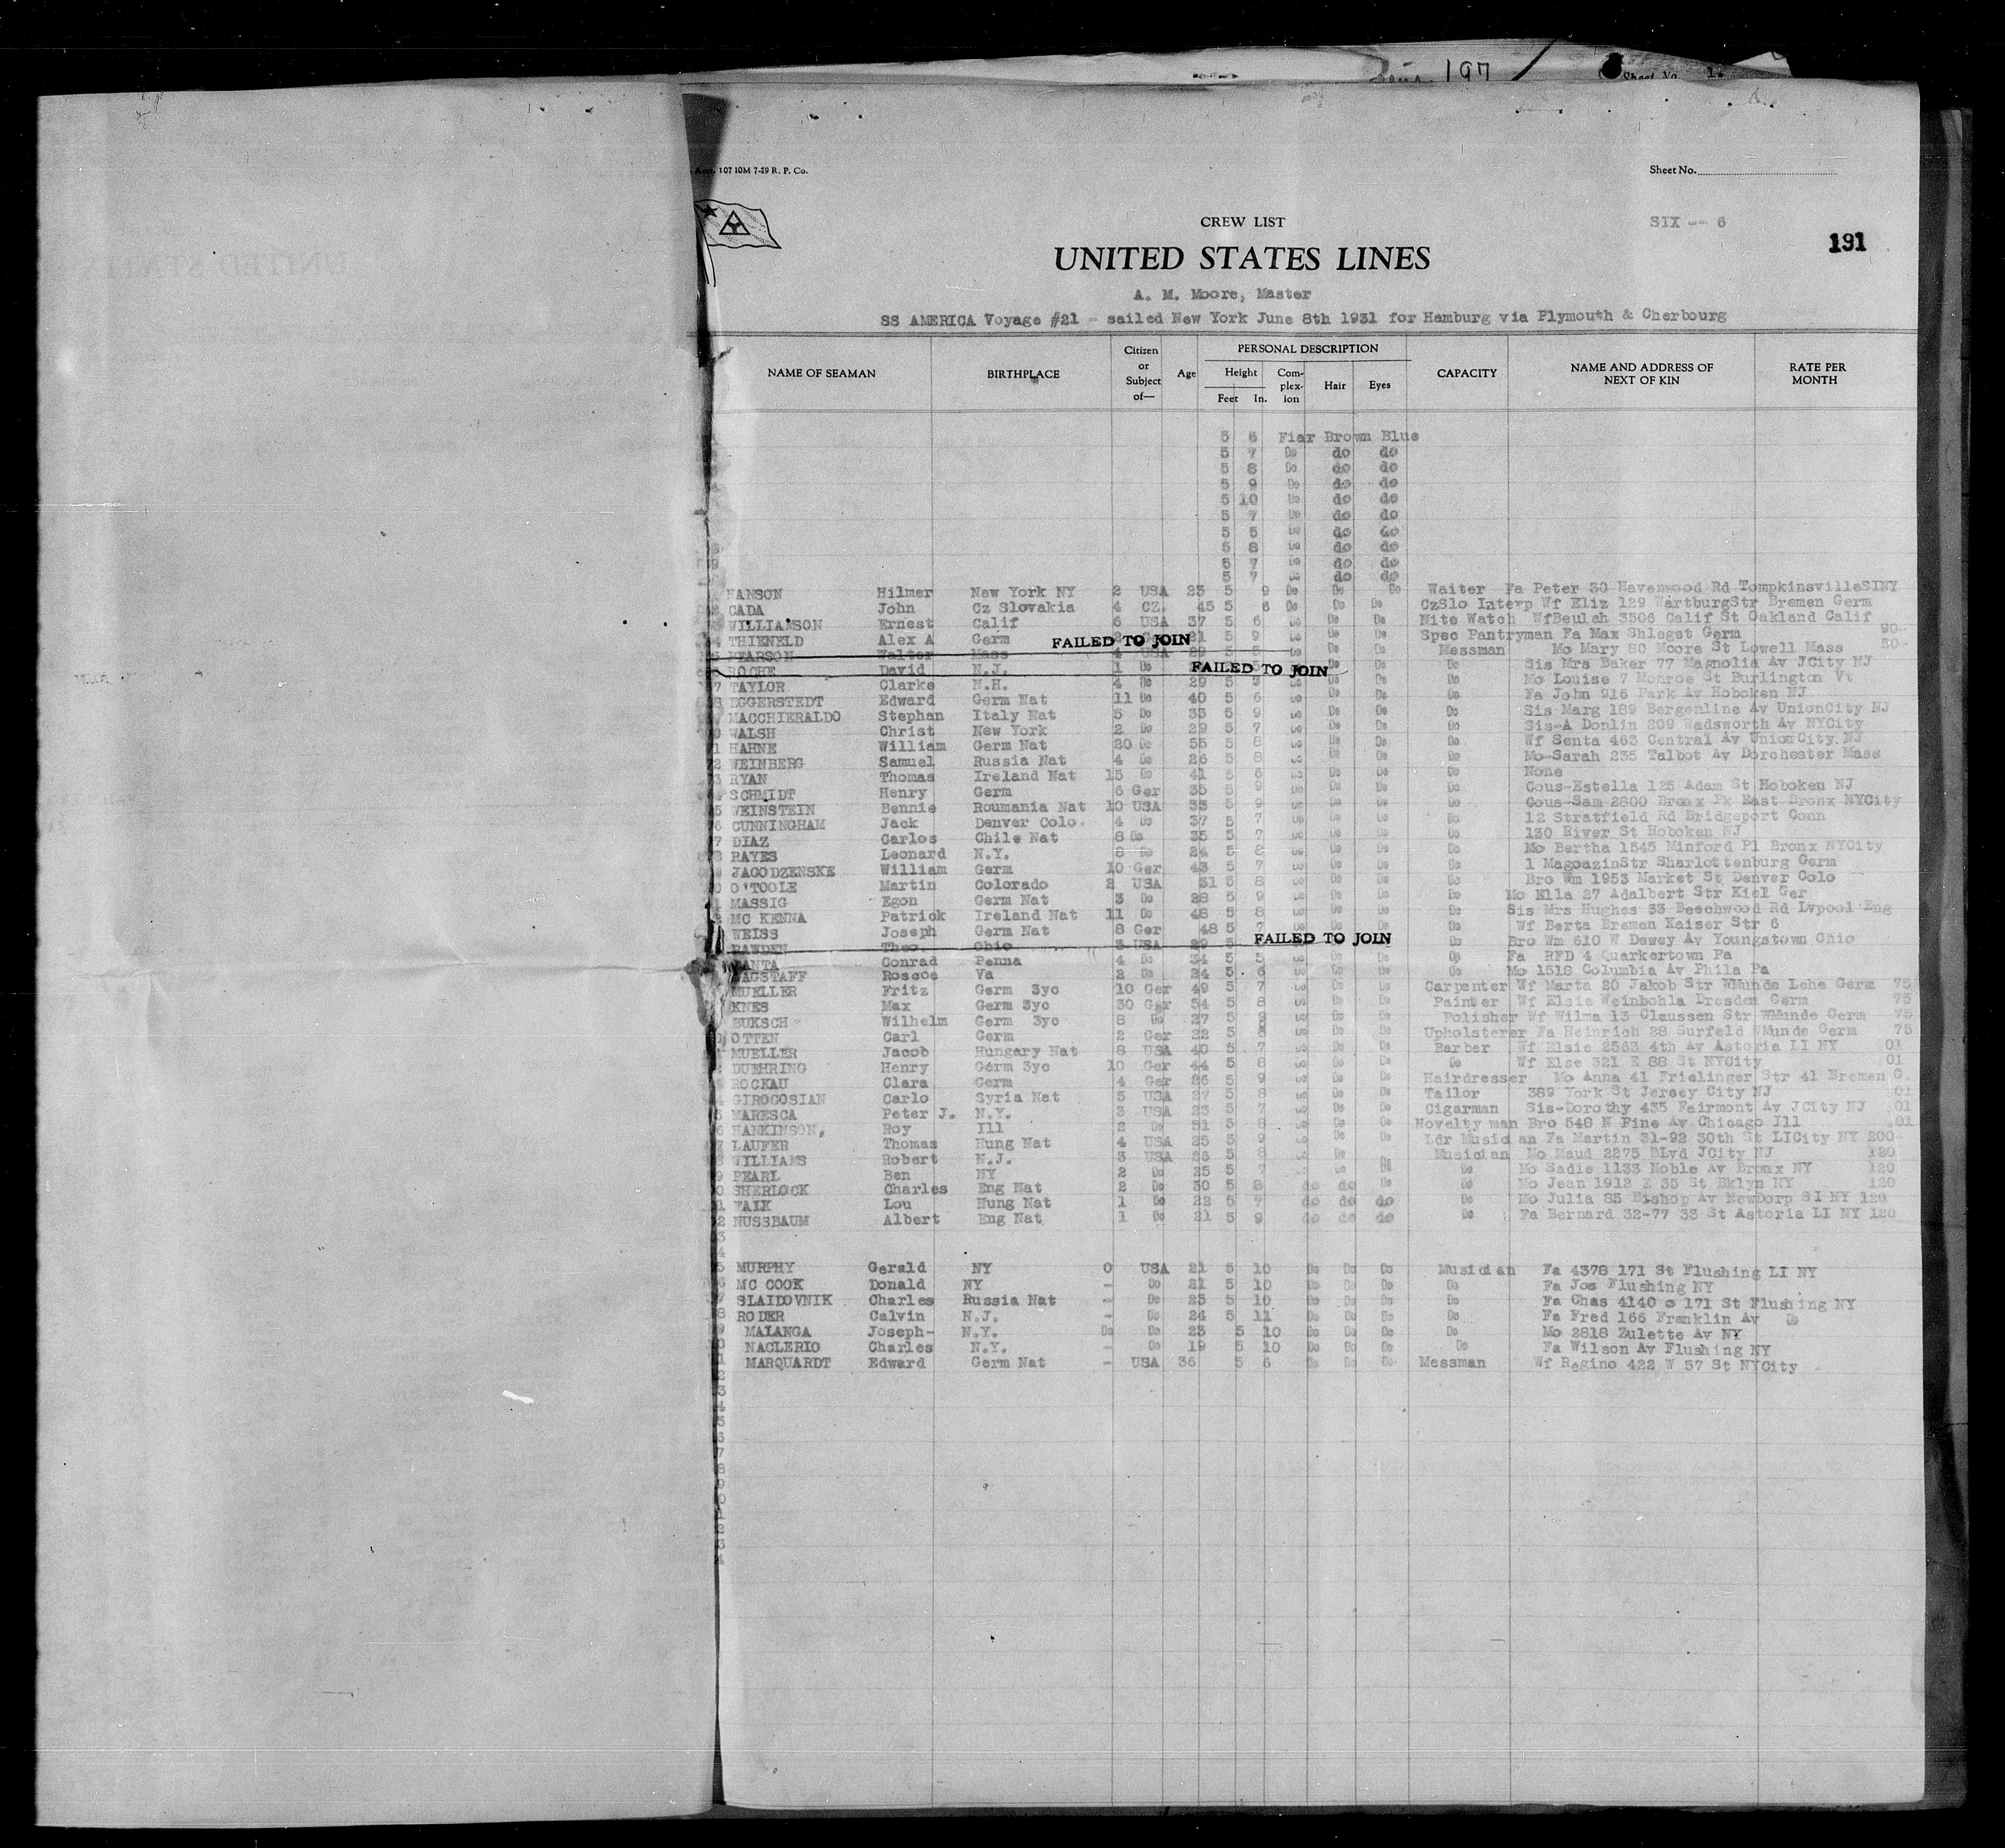 197
Sheet No. 1.
Acct. 107 10M 7-29 R. P. Co.
Sheet No.
CREW LIST
SIX -- 6
191
UNITED STATES LINES
A. M. Moore, Master
SS AMERICA Voyage #21 - sailed New York June 8th 1931 for Hamburg via Plymouth & Cherbourg
NAME OF SEAMAN BIRTHPLACE Citizen or Subject of— Age PERSONAL DESCRIPTION Height Feet In. Com-plex-ion Hair Eyes CAPACITY NAME AND ADDRESS OF NEXT OF KIN RATE PER MONTH
5 6 Fiar Brown Blue
5 7 Do do do
5 8 Do do do
5 9 Do do do
5 10 Do do do
5 7 Do do do
5 5 Do do do
5 8 Do do do
5 7 Do do do
5 7 Do do do
HANSON Hilmer New York NY 2 USA 23 5 9 Do Do Do Waiter Fa Peter 30 Havenwood Rd TompkinsvilleSINY
CADA John Cz Slovakia 4 CZ. 45 5 6 Do Do Do CzSlo Interp Wf Eliz 129 WartburgStr Bremen Germ
WILLIAMSON Ernest Calif 6 USA 37 5 6 Do Do Do Nite Watch WfBeulah 3506 Calif St Oakland Calif
4 THIENELD Alex A Germ 21 5 9 Do Do Do Spec Pantryman Fa Max Shleget Germ 90
FAILED TO JOIN
PEARSON Walter Mass 4 USA 29 5 Do Do Do Messman Mo Mary 80 Moore St Lowell Mass 50
ROCHE David N.J. 1 Do FAILED TO JOIN Do Do Do Sis Mrs Baker 77 Magnolia Av JCity NJ
7 TAYLOR Clarke N.H. 4 Do 29 5 Do Do Do Do Mo Louise 7 Monroe St Burlington Vt
8 EGGERSTEDT Edward Germ Nat 11 Do 40 5 6 Do Do Do Do Fa John 916 Park Av Hoboken NJ
MACCHIERALDO Stephan Italy Nat 5 Do 33 5 9 Do Do Do Do Sis Marg 189 Bergenline Av UnionCity NJ
0 WALSH Christ New York 2 Do 29 5 7 Do Do Do Do Sis-A Donlin 209 Wadsworth Av NYCity
1 HAHNE William Germ Nat 20 Do 55 5 8 Do Do Do Do Wf Senta 463 Central Av UnionCity NJ
2 WEINBERG Samuel Russia Nat 4 Do 26 5 8 Do Do Do Do Mo-Sarah 235 Talbot Av Dorchester Mass
3 RYAN Thomas Ireland Nat 15 Do 41 5 6 Do Do Do Do None
SCHMIDT Henry Germ 6 Ger 35 5 9 Do Do Do Do Cous-Estella 125 Adam St Hoboken NJ
5 WEINSTEIN Bennie Roumania Nat 10 USA 33 5 9 Do Do Do Do Cous-Sam-2800 Bronx Pk East Bronx NYCity
6 CUNNINGHAM Jack Denver Colo. 4 Do 37 5 7 Do Do Do Do 12 Stratfield Rd Bridgeport Conn
7 DIAZ Carlos Chile Nat 8 Do 35 5 7 Do Do Do Do 130 River St Hoboken NJ
8 RAYES Leonard N.Y. 8 Do 24 5 8 Do Do Do Do Mo Bertha 1545 Minford Pl Bronx NYCity
JAGODZENSKE William Germ 10 Ger 43 5 7 Do Do Do Do 1 MagoazinStr Sharlottenburg Germ
O'TOOLE Martin Colorado 2 USA 31 5 8 Do Do Do Do Bro Wm 1953 Market St Denver Colo
MASSIG Egon Germ Nat 3 Do 28 5 9 Do Do Do Do Mo Ella 27 Adalbert Str Kiel Ger
MC KENNA Patrick Ireland Nat 11 Do 48 5 8 Do Do Do Do Sis Mrs Hughes 33 Beechwood Rd Lvpool Eng
WEISS Joseph Germ Nat 8 Ger 48 5 7 Do Do Do Do Wf Berta Bremen Kaiser Str 6
RAWDEN Theo. Ohio 3 USA 29 5 FAILED TO JOIN Do Bro Wm 610 W Dewey Av Youngstown Ohio
Conrad Penna 4 Do 34 5 5 Do Do Do Do Fa RFD 4 Quarkertown Pa
WAGSTAFF Roscoe Va 2 Do 24 5 6 Do Do Do Do Mo 1518 Columbia Av Phila Pa
MUELLER Fritz Germ 3yc 10 Ger 49 5 7 Do Do Do Carpenter Wf Marta 20 Jakob Str WMunde Lehe Germ 75
KNES Max Germ 3yc 30 Ger 54 5 8 Do Do Do Painter Wf Elsie Weinbohla Dresden Germ 75
BUKSCH Wilhelm Germ 3yc 8 Do 27 5 Do Do Do Polisher Wf Wilma 13 Claussen Str WMunde Germ 75
OTTEN Carl Germ 2 Ger 22 5 8 Do Do Do Upholsterer Fa Heinrich 28 Surfeld WMunde Germ 75
MUELLER Jacob Hungary Nat 8 USA 40 5 7 Do Do Do Barber Wf Elsie 2563 4th Av Astoria LI NY 01
DUEHRING Henry Germ 3yc 10 Ger 44 5 8 Do Do Do Do Wf Else 321 E 88 St NYCity 01
ROCKAU Clara Germ 4 Ger 26 5 9 Do Do Do Hairdresser Mo Anna 41 Frielinger Str 41 Bremen G.
GIROCOSIAN Carlo Syria Nat 5 USA 27 5 8 Do Do Do Tailor 389 York St Jersey City NJ 01
5 MARESCA Peter J. N.Y. 3 USA 23 5 7 Do Do Do Cigarman Sis-Dorothy 435 Fairmont Av JCity NJ 01
6 HANKINSON, Roy Ill 2 Do 51 5 8 Do Do Do Novelty man Bro 548 N Pine Av Chicago Ill 01
7 LAUFER Thomas Hung Nat 4 USA 25 5 9 Do Do Do Ldr Musician Fa Martin 31-92 30th St LICity NY 200
8 WILLIAMS Robert N.J. 3 USA 26 5 8 Do Do Do Musician Mo Maud 2275 BLvd JCity NJ 120
9 PEARL Ben NY 2 Do 25 5 7 Do Do Do Mo Sadie 1133 Noble Av Bronx NY 120
0 SHERLOCK Charles Eng Nat 2 Do 30 5 8 do do Do Do Mo Jean 1912 E 35 St Bklyn NY 120
1 FAIK Lou Hung Nat 1 Do 22 5 7 do do do Do Mo Julia 85 Bishop Av NewDorp SI NY 120
2 NUSSBAUM Albert Eng Nat 1 Do 21 5 9 do do do Do Fa Bernard 32-77 33 St Astoria LI NY 120
3
4
5 MURPHY Gerald NY 0 USA 21 5 10 Do Do Do Musician Fa 4378 171 St Flushing LI NY
6 MC COOK Donald NY - Do 21 5 10 Do Do Do Do Fa Jos Flushing NY
7 SLAIDOVNIK Charles Russia Nat - Do 25 5 10 Do Do Do Do Fa Chas 4140 @ 171 St Flushing NY
8 RODER Calvin N.J. - Do 24 5 11 Do Do Do Do Fa Fred 166 Franklin Av Do
9 MALANGA Joseph- N.Y. Do Do 23 5 10 Do Do Do Do Mo 2818 Zulette Av NY
0 NACLERIO Charles N.Y. - Do 19 5 10 Do Do Do Do Fa Wilson Av Flushing NY
1 MARQUARDT Edward Germ Nat - USA 36 5 6 Do Do Do Messman Wf Regino 422 W 57 St NYCity
2
3
4
5
6
7
8
9
0
1
2
3
4